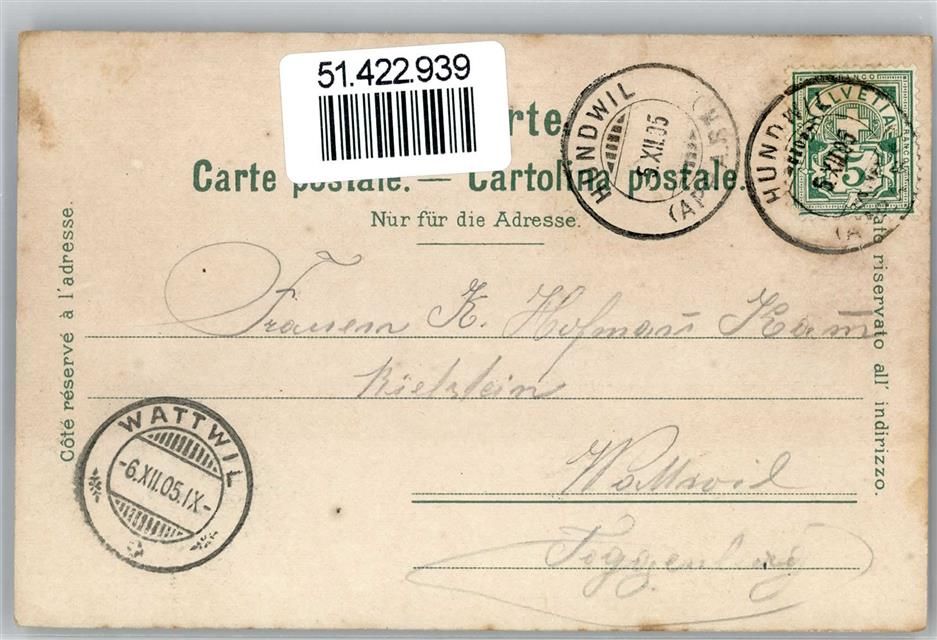 51.422.939
rte.
Carte postale. — Cartolina postale.
Nur für die Adresse.
Côté réservé à l'adresse.
lato riservato all' indirizzo.
HUNDWIL
5.XII.05
(APPENZ.)
HELVETIA
FRANCO
5
HUNDWIL
5.XII.05
Frauem K. Hofmann Kamm
Wattwil
Toggenburg
WATTWIL
-6.XII.05.IX-